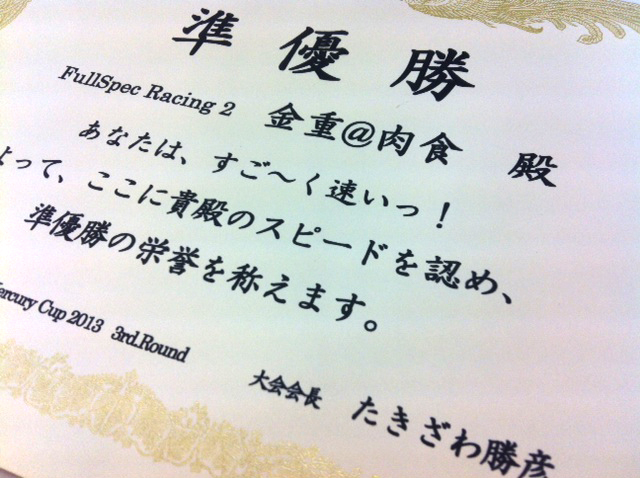 準優勝
FullSpec Racing 2 金重@肉食 殿
あなたは、すご〜く速いっ！
よって、ここに貴殿のスピードを認め、
準優勝の栄誉を称えます。
ercury Cup 2013 3rd.Round
大会会長 たきざわ勝彦